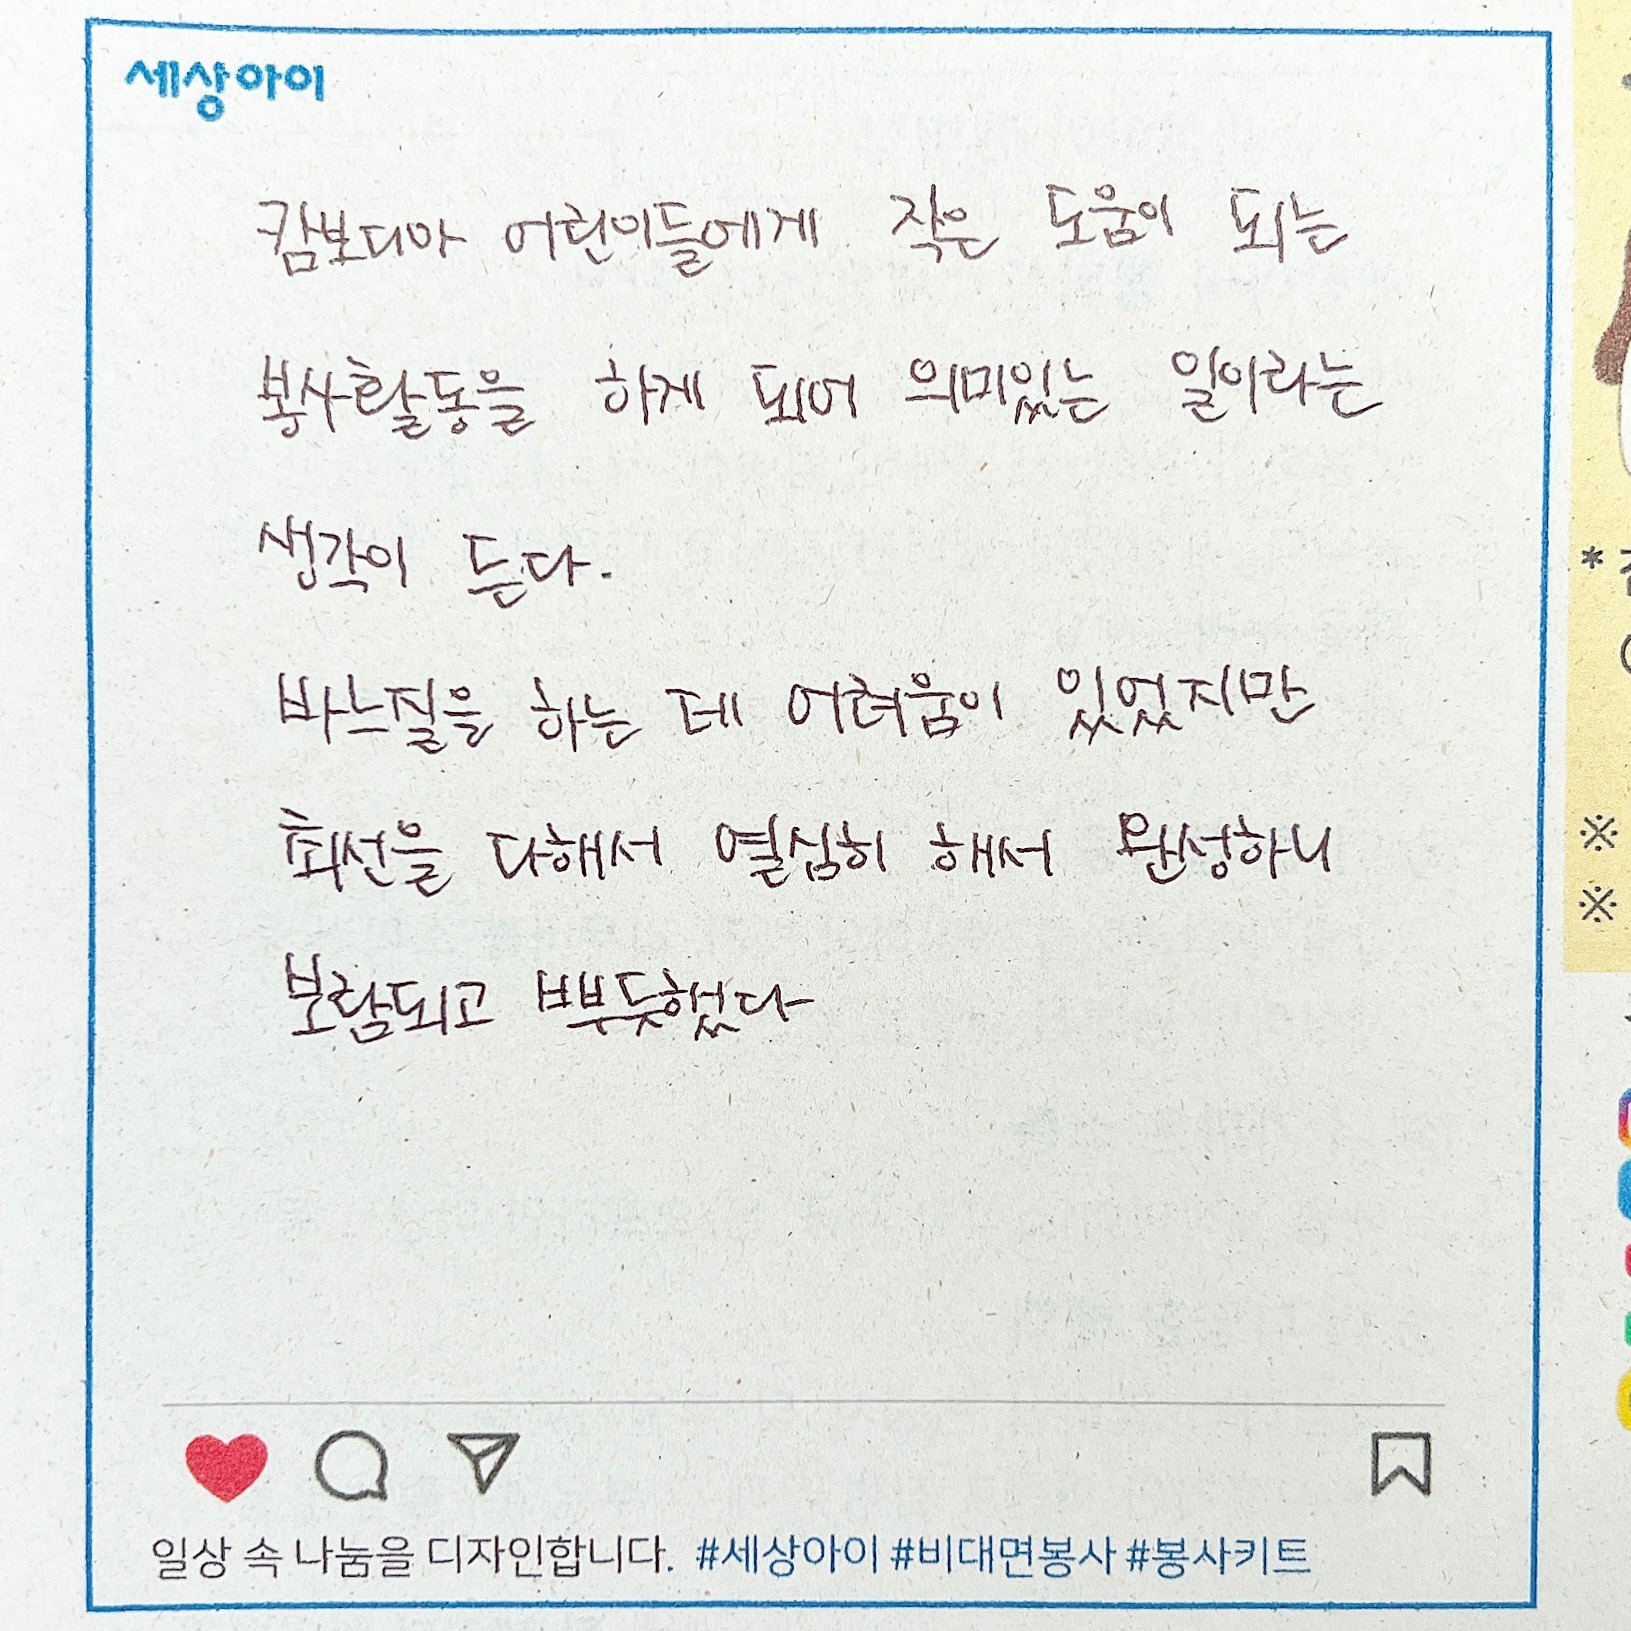 세상아이
캄보디아 어린이들에게 작은 도움이 되는
봉사활동을 하게 되어 의미있는 일이라는
생각이 든다.
바느질을 하는 데 어려움이 있었지만
최선을 다해서 열심히 해서 완성하니
보람되고 뿌듯했다
일상 속 나눔을 디자인합니다. #세상아이 #비대면봉사 #봉사키트
*
※
※